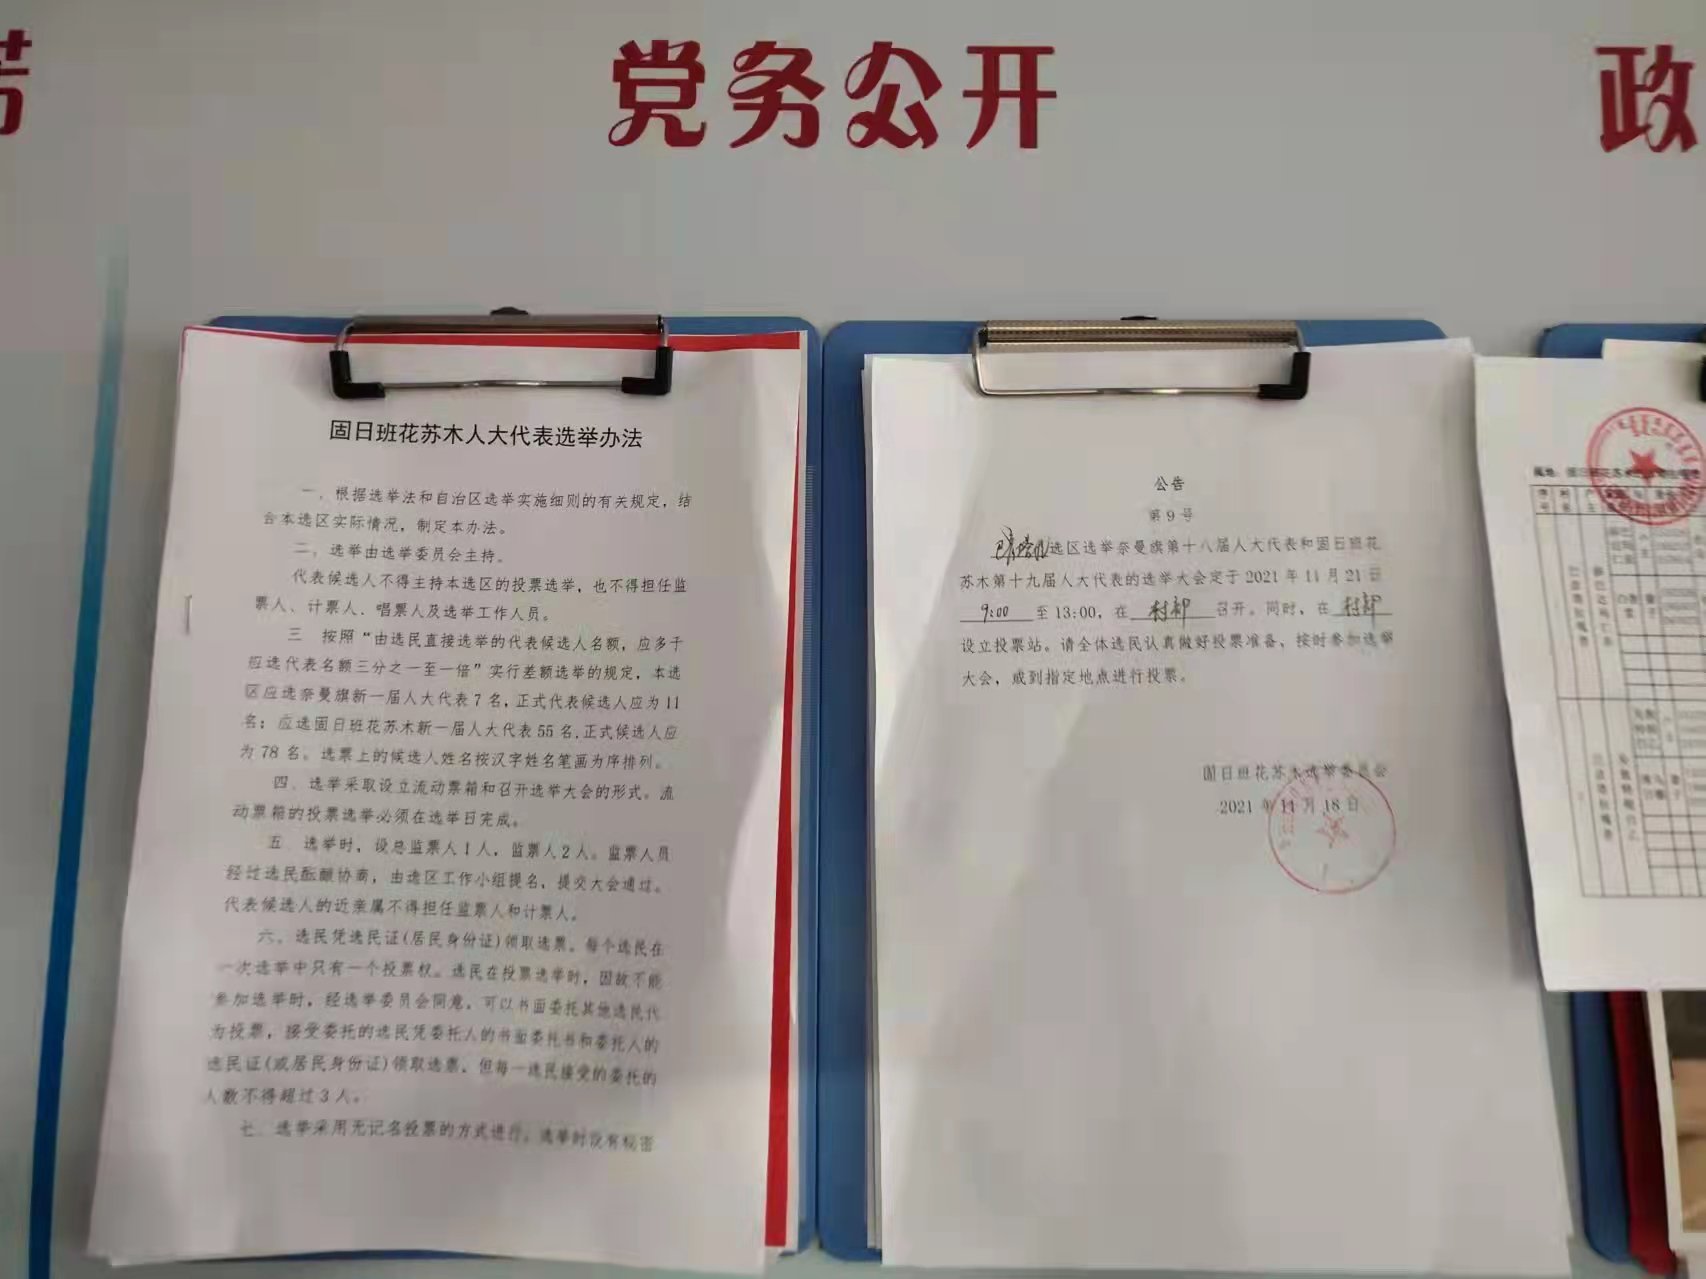 党务公开
政
固日班花苏木人大代表选举办法
一、根据选举法和自治区选举实施细则的有关规定，结
合本选区实际情况，制定本办法。
二、选举由选举委员会主持。
代表候选人不得主持本选区的投票选举，也不得担任监
票人、计票人、唱票人及选举工作人员。
三 按照“由选民直接选举的代表候选人名额，应多于
应选代表名额三分之一至一倍”实行差额选举的规定，本选
区应选奈曼旗新一届人大代表7名，正式代表候选人应为11
名；应选固日班花苏木新一届人大代表55名,正式候选人应
为78名。选票上的候选人姓名按汉字姓名笔画为序排列。
四、选举采取设立流动票箱和召开选举大会的形式。流
动票箱的投票选举必须在选举日完成。
五、选举时，设总监票人1人，监票人2人。监票人员
经过选民酝酿协商，由选区工作小组提名，提交大会通过。
代表候选人的近亲属不得担任监票人和计票人。
六、选民凭选民证(居民身份证)领取选票。每个选民在
一次选举中只有一个投票权。选民在投票选举时，因故不能
参加选举时，经选举委员会同意，可以书面委托其他选民代
为投票，接受委托的选民凭委托人的书面委托书和委托人的
选民证(或居民身份证)领取选票，但每一选民接受的委托的
人数不得超过3人。
七、选举采用无记名投票的方式进行。选举时设有秘密
公告
第9号
选区选举奈曼旗第十八届人大代表和固日班花
苏木第十九届人大代表的选举大会定于2021年11月21日
9:00 至13:00，在 村部 召开。同时，在 村部
设立投票站。请全体选民认真做好投票准备，按时参加选举
大会，或到指定地点进行投票。
固日班花苏木选举委员会
2021年11月18日